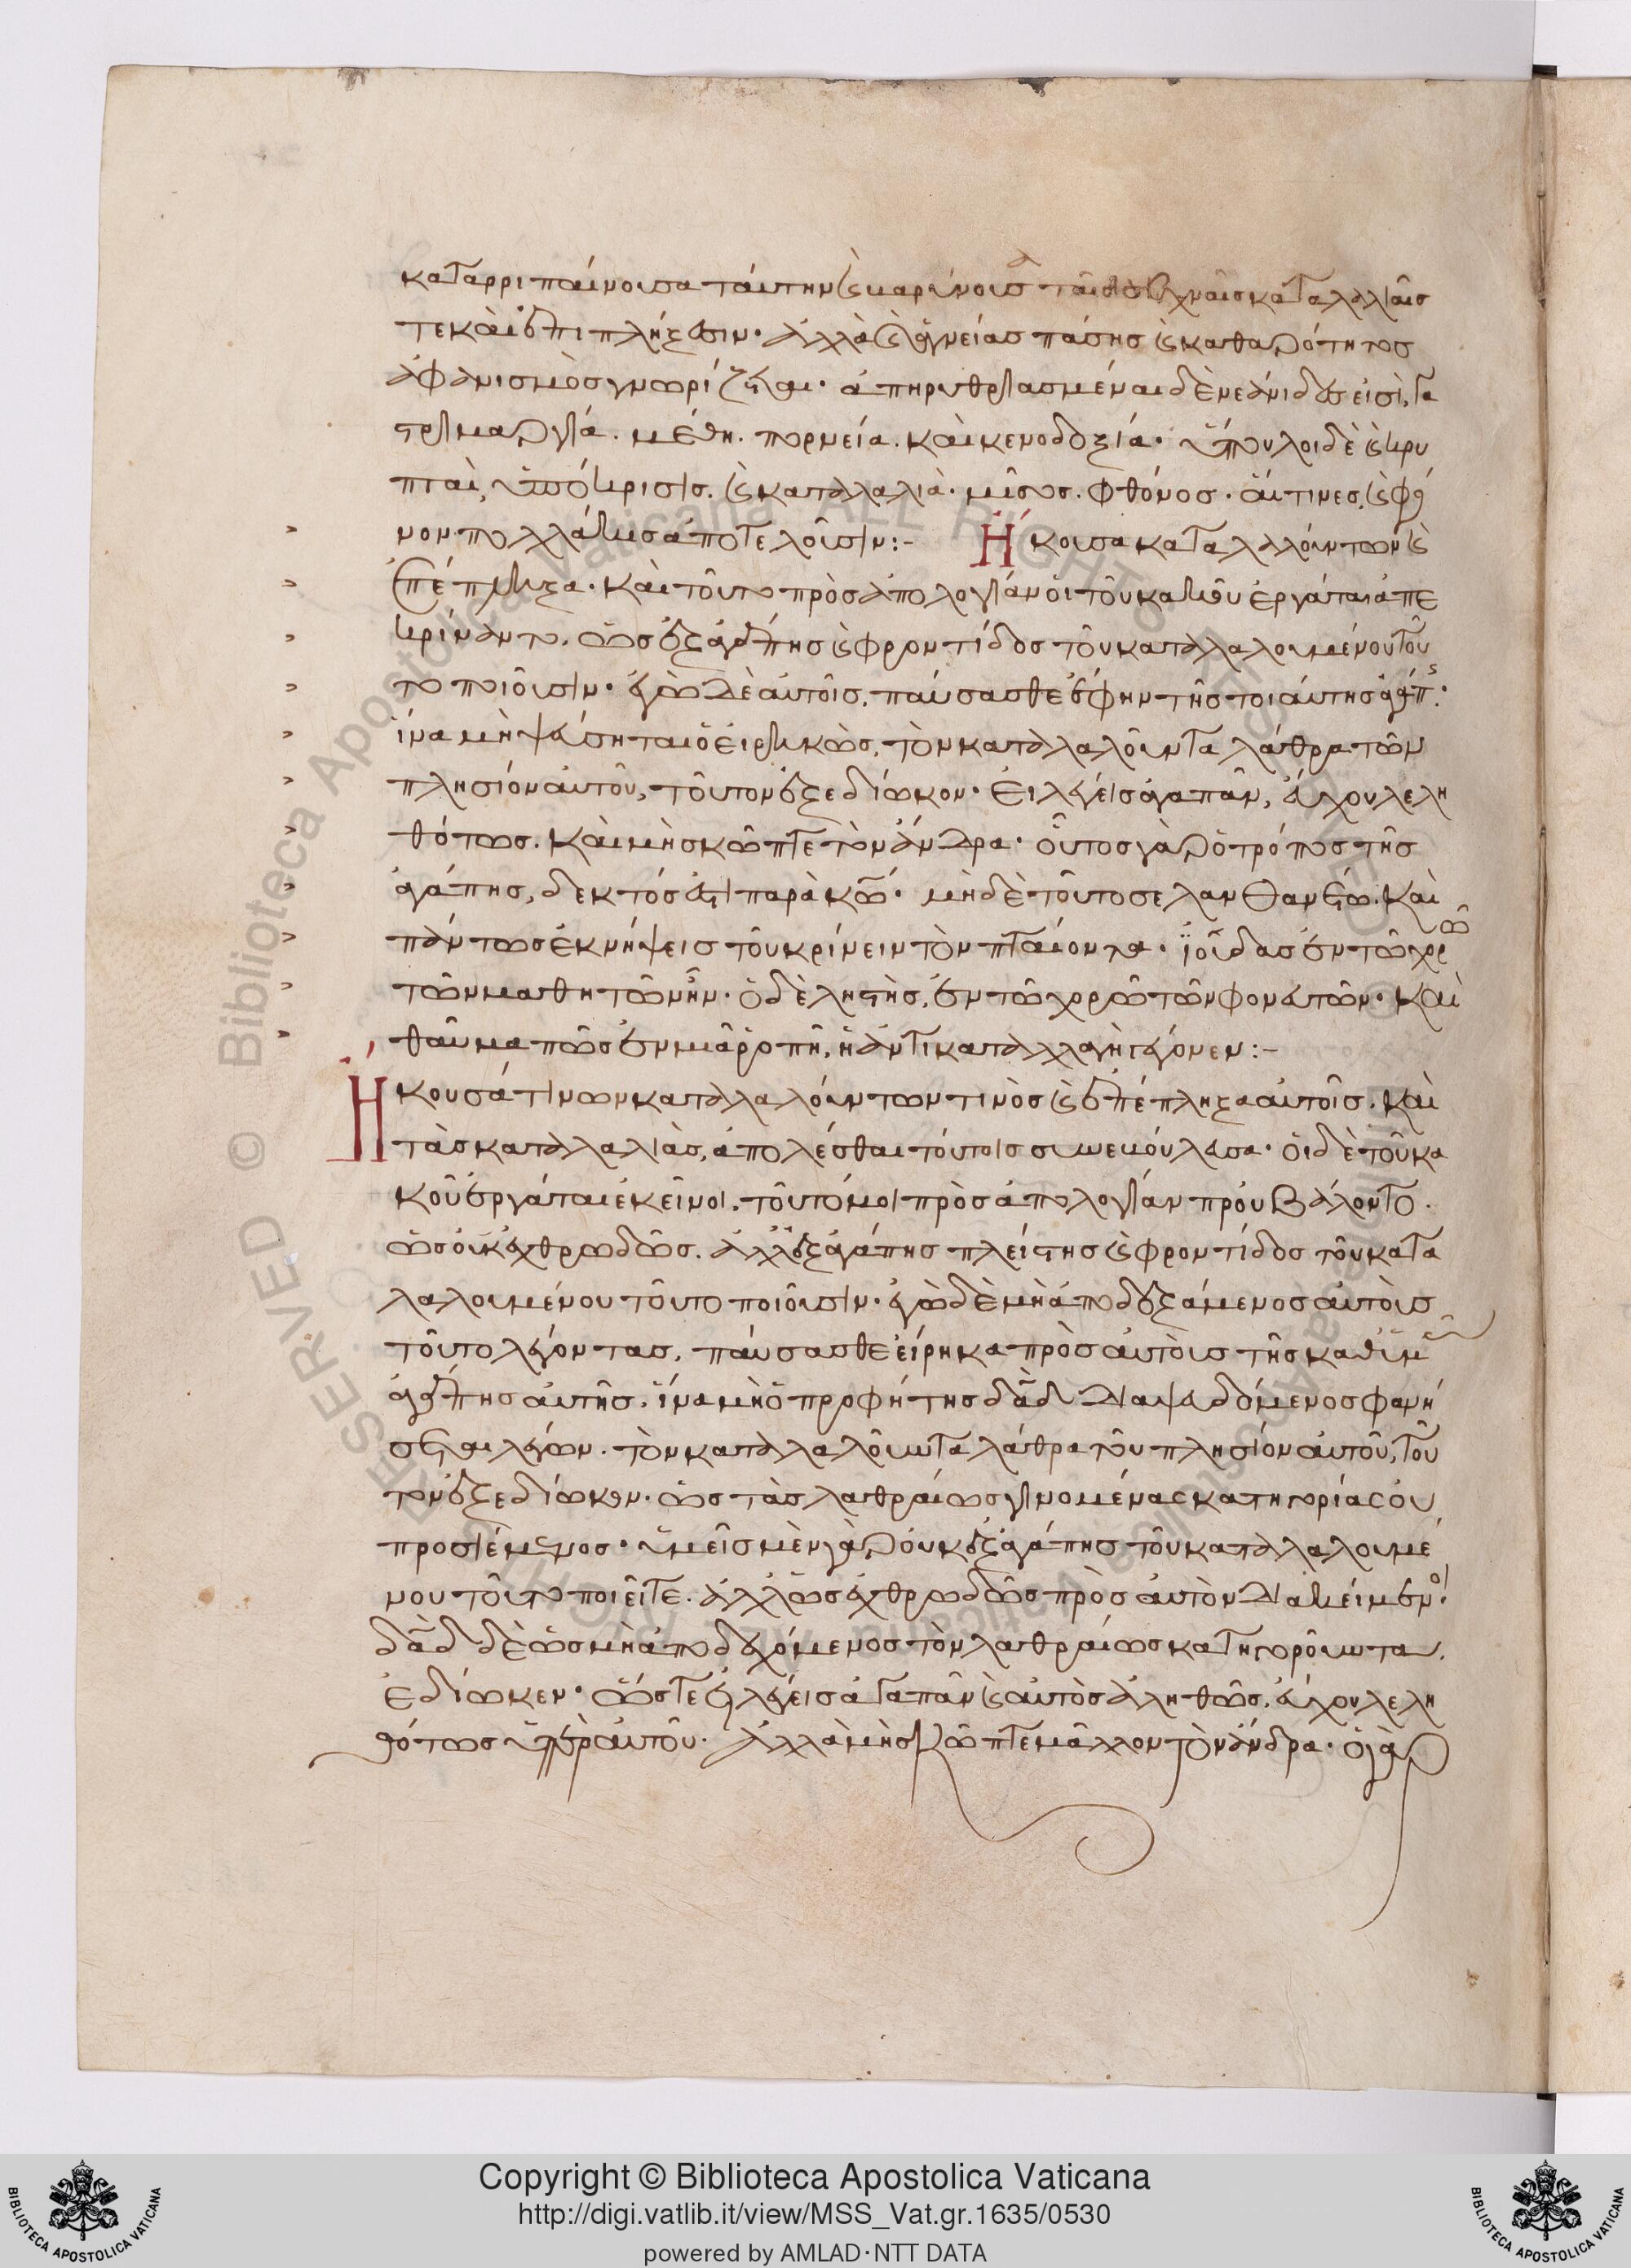 καταρριπαίνουσα ταύτην καὶ μαραίνουσα ταῖς συχναῖς καταλαλιαῖς
τε καὶ ἐπιπλήξεσιν· ἀλλὰ καὶ ἁγνείας πάσης καὶ καθαρότητος
ἀφανισμὸς γνωρίζεται· ἀπηρυθριασμέναι δὲ νεάνιδες εἰσὶ, γα
στριμαργία. μέθη. πορνεία. καὶ κενοδοξία· ὕπουλοι δὲ καὶ κρυ
πταὶ, ὑπόκρισις. καὶ καταλαλιὰ. μῖσος. φθόνος. αἵτινες, καὶ φό
νον πολλάκις ἀποτελοῦσιν:- Ἤκουσα καταλαλούντων καὶ
ἐπέπληξα· καὶ τοῦτο πρὸς ἀπολογίαν οἱ τοῦ κακοῦ ἐργάται ἀπε
κρίναντο. ὡς ἐξ ἀγάπης καὶ φροντίδος τοῦ καταλαλουμένου τοῦ
το ποιοῦσιν· ἐγὼ δὲ αὐτοῖς. παύσασθε ἔφην τῆς τοιαύτης ἀγάπης·
ἵνα μὴ ψεύσηται ὁ εἰρηκὼς, τὸν καταλαλοῦντα λάθρα τὸν
πλησίον αὐτοῦ, τοῦτον ἐξεδίωκον· εἰ λέγεις ἀγαπᾶν, εὔχου λελη
θότως. καὶ μὴ σκῶπτε τὸν ἄνδρα· οὗτος γὰρ ὁ τρόπος τῆς
ἀγάπης, δεκτός ἐστι παρὰ κω· μὴ δὲ τοῦτο σε λανθανέτω. καὶ
πάντως ἐκνήψεις τοῦ κρίνειν τὸν πταίοντα· ἰούδας ἐν τῶ χορῶ
τῶν μαθητῶν ἦν· ὁ δὲ ληστὴς, ἐν τῶ χορῶ τῶν φονευτῶν· καὶ
θαῦμα πῶς ἐν μιᾶ ῥοπῆ, ἡ ἀντικαταλλαγὴ γέγονεν:-
Ἤκουσά τινων καταλαλούντων τινὸς καὶ ἐπέπληξα αὐτοῖς. καὶ
τὰς καταλαλιὰς, ἀπολέσθαι τούτοις συνεβούλευσα· οἱ δὲ τοῦ κα
κοῦ ἐργάται ἐκεῖνοι. τοῦτό μοι πρὸς ἀπολογίαν προὐβάλοντο.
ὡς οὐκ ἐχθρωδῶς. ἀλλ' ἐξ ἀγάπης πλείστης καὶ φροντίδος τοῦ κατα
λαλουμένου τοῦτο ποιοῦσιν· ἐγὼ δὲ μὴ ἀποδεξάμενος αὐτοὺς
τοῦτο λέγοντας, παύσασθε εἴρηκα πρὸς αὐτοὺς τῆς καθ' ὑμᾶς
ἀγάπης αὐτῆς. ἵνα μὴ ὁ προφήτης δαδ διαψευδόμενος φανή
σεται λέγων. τὸν καταλαλοῦντα λάθρα τοῦ πλησίον αὐτοῦ, τοῦ
τον ἐξεδίωκον. ὡς τὰς λαθραίως γινομένας κατηγορίας οὐ
προσιέμενος· ὑμεῖς μὲν γὰρ οὐκ ἐξ ἀγάπης τοῦ καταλαλουμέ
νου τοῦτο ποιεῖτε. ἀλλ' ὡς ἐχθρωδῶς πρὸς αὐτὸν διακείμενοι·
δαδ δὲ ὡς μὴ ἀποδεχόμενος τὸν λαθραίως κατηγοροῦντα.
ἐδίωκεν· ὥστε εἰ λέγεις ἀγαπᾶν καὶ αὐτὸς ἀληθῶς. εὔχου λελη
θότως ὑπὲρ αὐτοῦ. ἀλλὰ μὴ σκῶπτε μᾶλλον τὸν ἄνδρα· ὁ γὰρ
Copyright © Biblioteca Apostolica Vaticana
http://digi.vatlib.it/view/MSS_Vat.gr.1635/0530
powered by AMLAD·NTT DATA
BIBLIOTECA APOSTOLICA VATICANA
BIBLIOTECA APOSTOLICA VATICANA